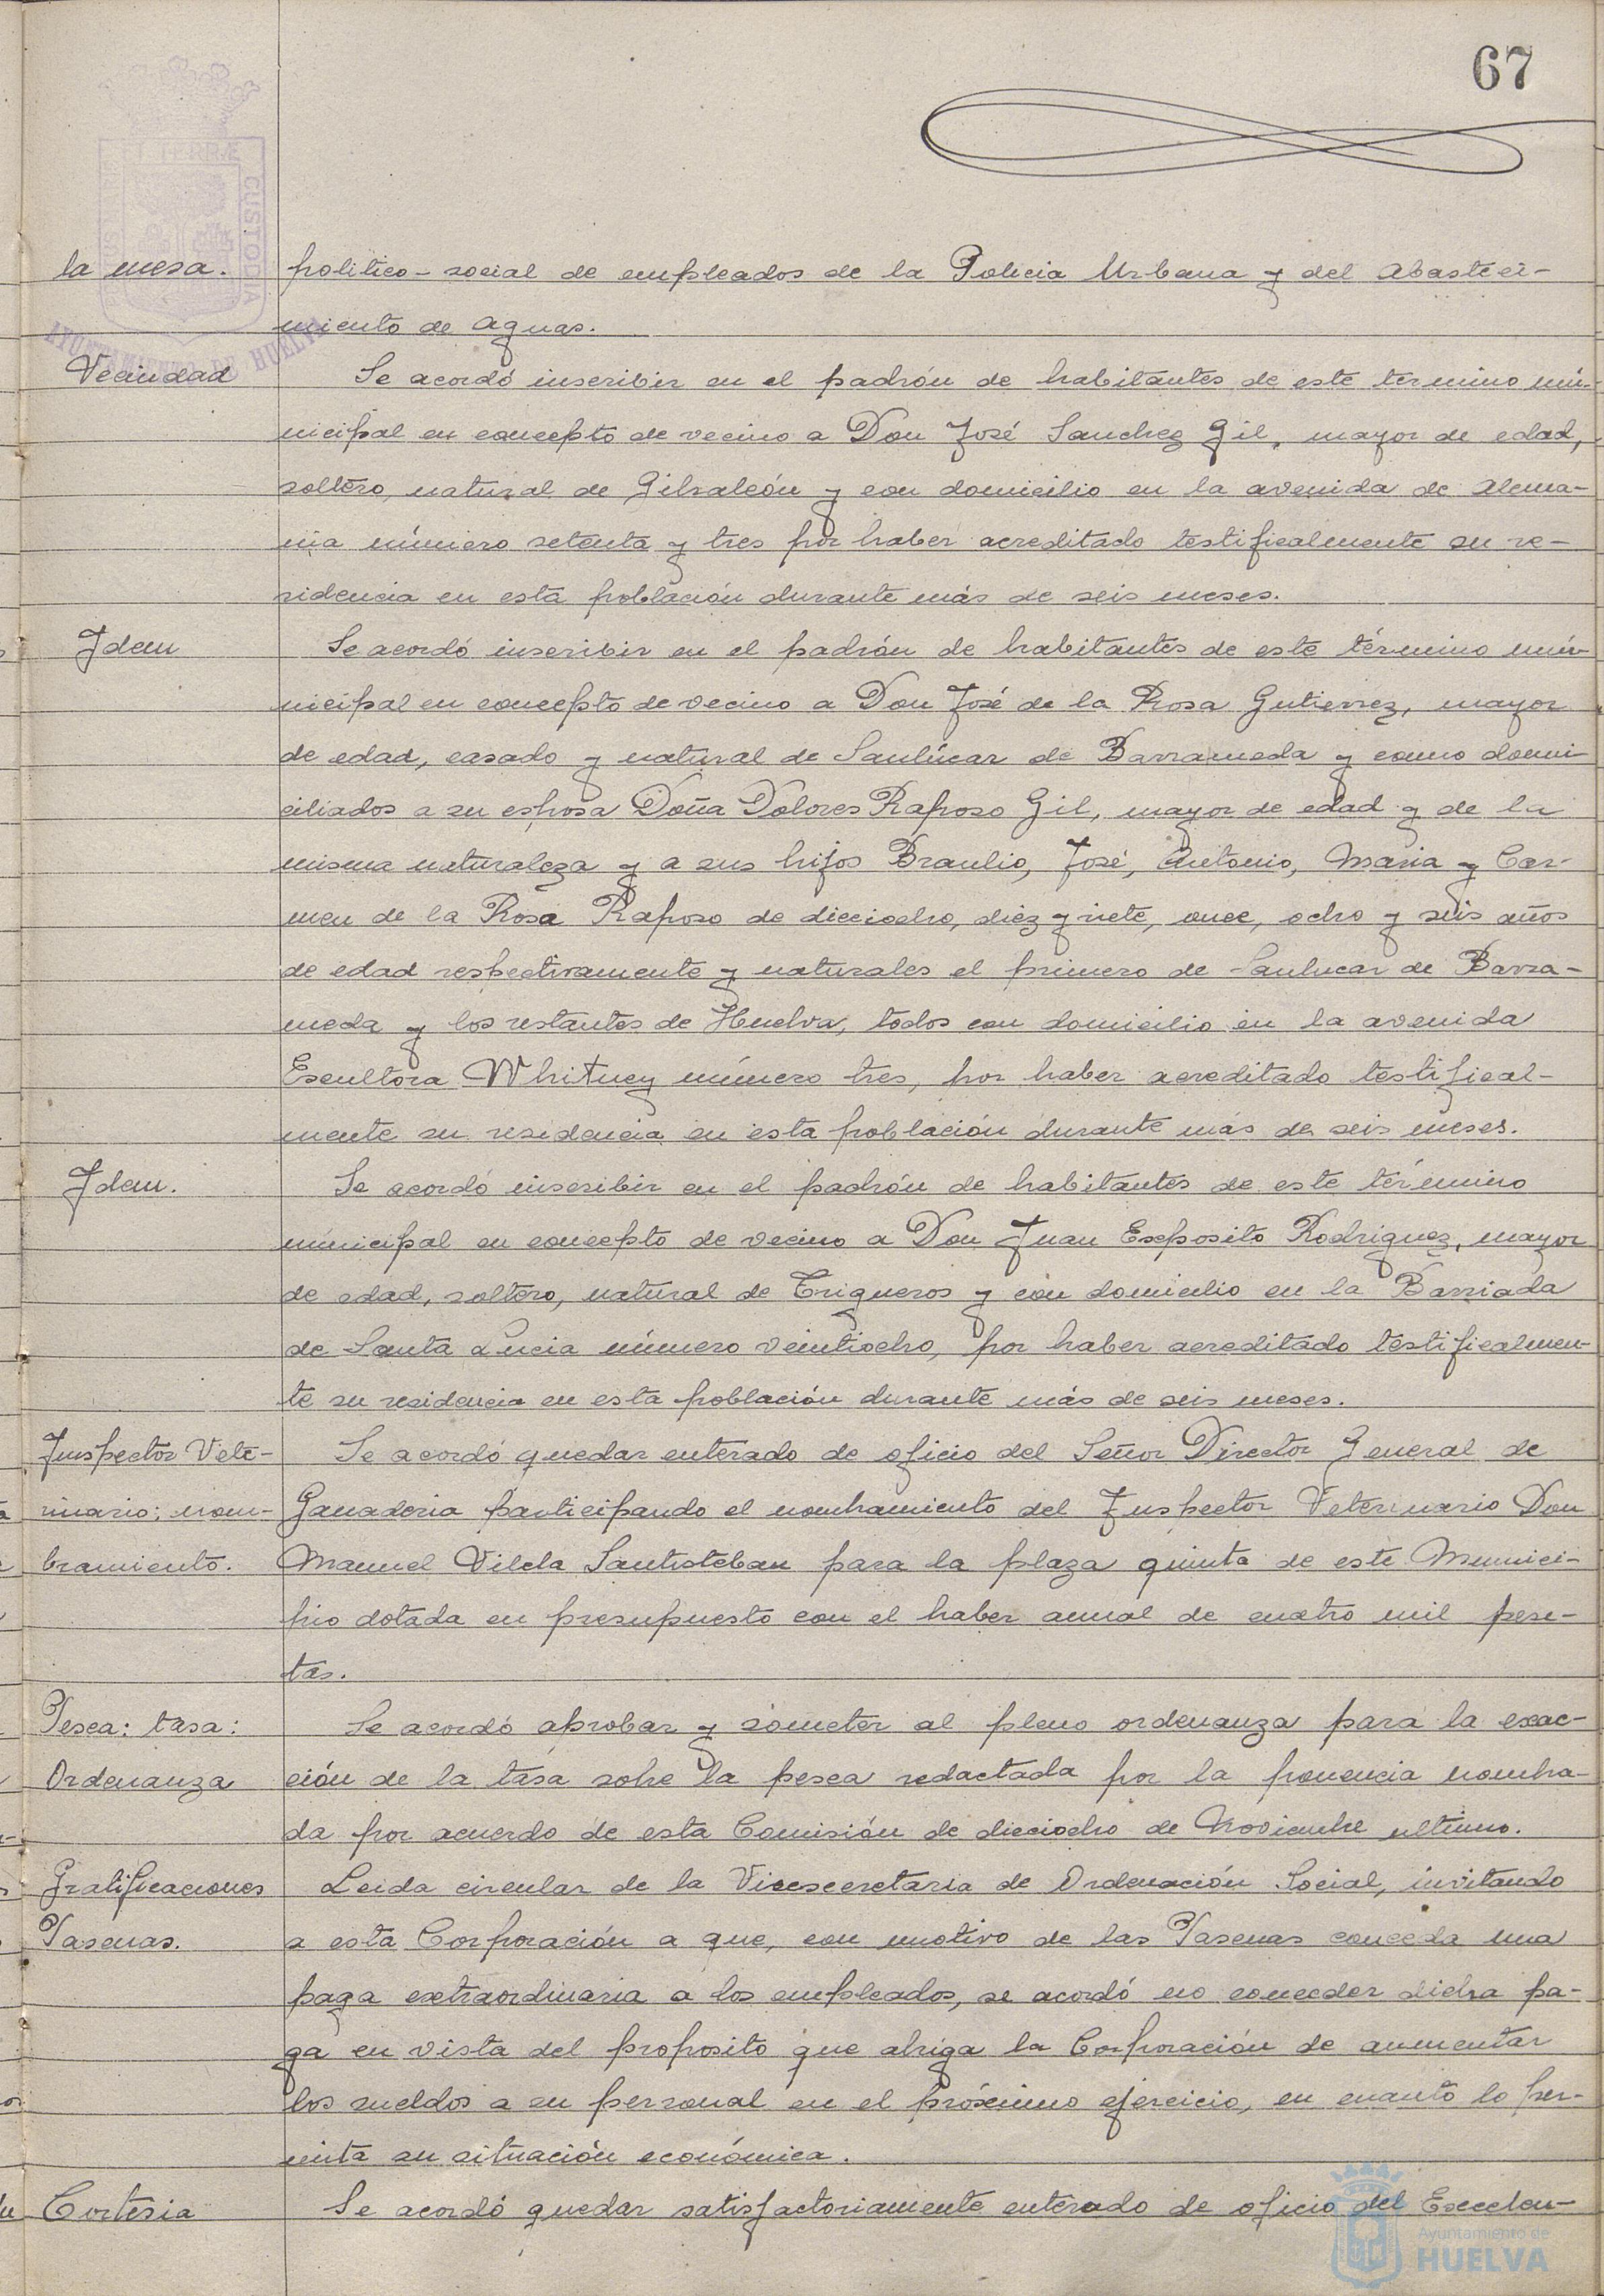 67
la mesa. politico-social de empleados de la Policia Urbana y del Abasteci-
miento de Aguas.
Vecindad Se acordó inscribir en el padrón de habitantes de este termino mu-
nicipal en concepto de vecino a Don José Sanchez Gil, mayor de edad,
soltero, natural de Gibraleón y con domicilio en la avenida de Alema-
nia número setenta y tres por haber acreditado testificalmente su re-
sidencia en esta población durante más de seis meses.
Idem Se acordó inscribir en el padrón de habitantes de este término mu-
nicipal en concepto de vecino a Don José de la Rosa Gutierrez, mayor
de edad, casado y natural de Sanlúcar de Barrameda y como domi-
ciliados a su esposa Doña Dolores Raposo Gil, mayor de edad y de la
misma naturaleza y a sus hijos Braulio, José, Antonio, Maria y Car-
men de la Rosa Raposo de dieciocho, diez y siete, once, ocho y seis años
de edad respectivamente y naturales el primero de Sanlucar de Barra-
meda y los restantes de Huelva, todos con domicilio en la avenida
Escultora Whitney número tres, por haber acreditado testifical-
mente su residencia en esta población durante más de seis meses.
Idem. Se acordó inscribir en el padrón de habitantes de este término
municipal en concepto de vecino a Don Juan Exposito Rodriguez, mayor
de edad, soltero, natural de Trigueros y con domicilio en la Barriada
de Santa Lucia número veintiocho, por haber acreditado testificalmen-
te su residencia en esta población durante más de seis meses.
Inspector Vete- Se acordó quedar enterado de oficio del Señor Director General de
rinario: nom- Ganaderia participando el nombramiento del Inspector Veterinario Don
bramiento. Manuel Vilela Santisteban para la plaza quinta de este Munici-
pio dotada en presupuesto con el haber anual de cuatro mil pese-
tas.
Pesca: tasa: Se acordó aprobar y someter al pleno ordenanza para la exac-
Ordenanza ción de la tasa sobre la pesca redactada por la ponencia nombra-
da por acuerdo de esta Comisión de dieciocho de Noviembre ultimo.
Gratificaciones Leida circular de la Vicesecretaria de Ordenación Social, invitando
Pascuas. a esta Corporación a que, con motivo de las Pascuas conceda una
paga extraordinaria a los empleados, se acordó no conceder dicha pa-
ga en vista del proposito que abriga la Corporación de aumentar
los sueldos a su personal en el próximo ejercicio, en cuanto lo per-
mita su situación económica.
Cortesia Se acordó quedar satisfactoriamente enterado de oficio del Excelen-
CUSTODIA
AYUNTAMIENTO DE HUELVA
Ayuntamiento de
HUELVA